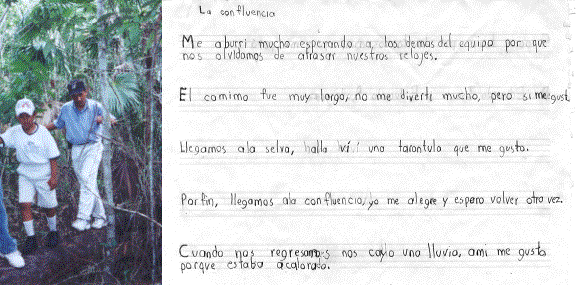 La confluencia
Me aburri mucho esperando a los demas del equipo por que
nos olvidamos de atrasar nuestros relojes.
El camimo fue muy largo, no me diverti mucho, pero si me gust
Llegamos ala selva, halla ví una tarantula que me gusto.
Por fin, llegamos ala confluencia, yo me alegre y espero volver otra vez.
Cuando nos regresamos nos cayo una lluvia, ami me gusto
porque estaba acalorado.